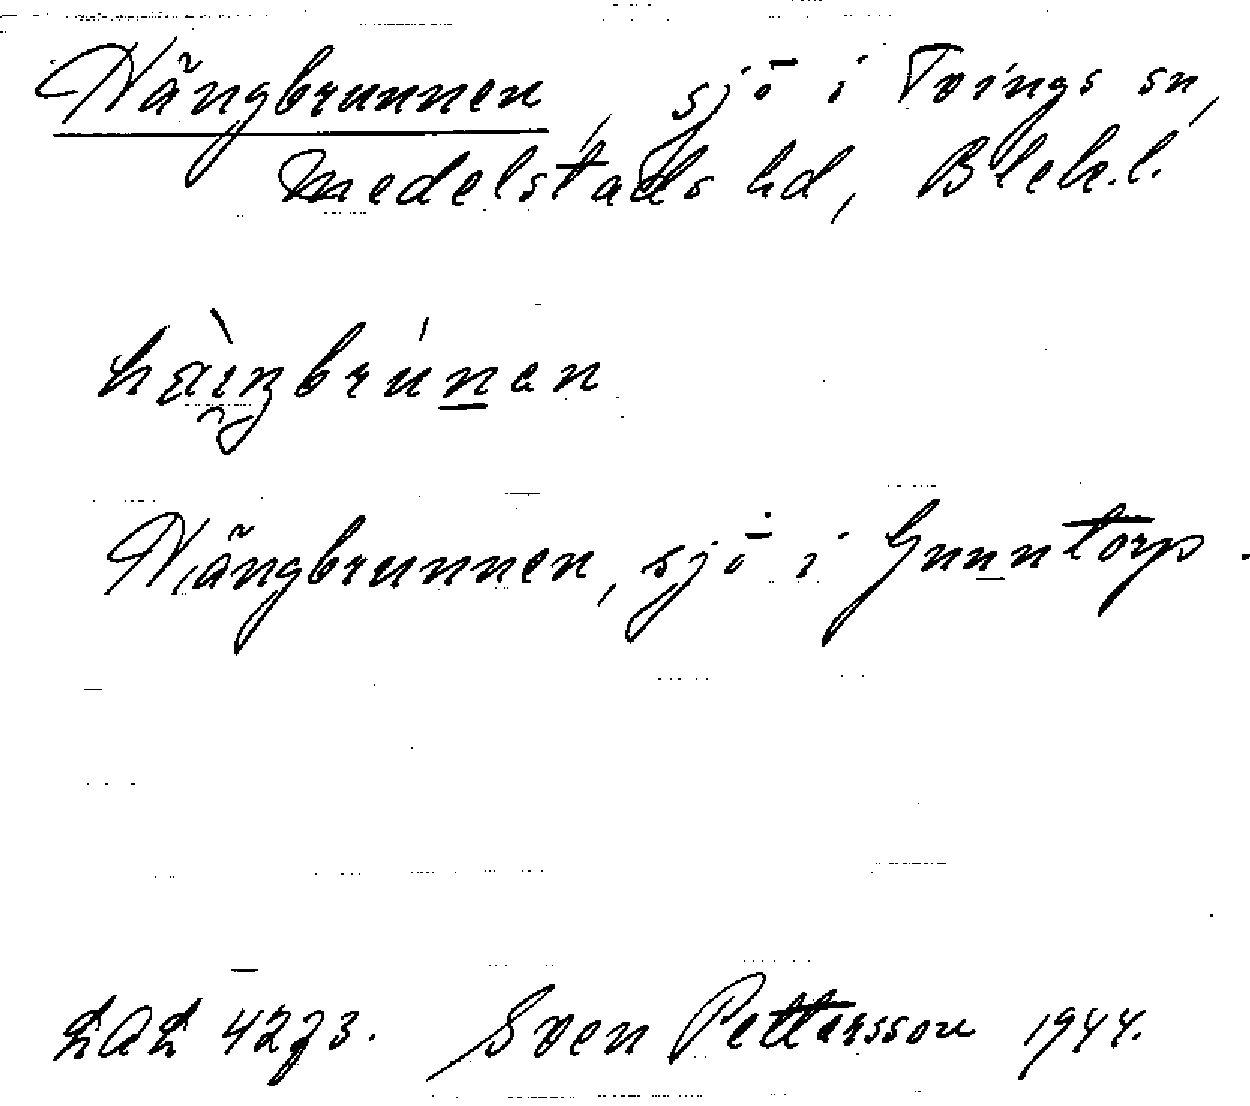 Hängbrunnen, sjö i Tvings sn,
Medelstads hd, Blek.l.
Hängbrunnen, sjö i Gunntorp.
LAL 4273. Sven Pettersson 1944.